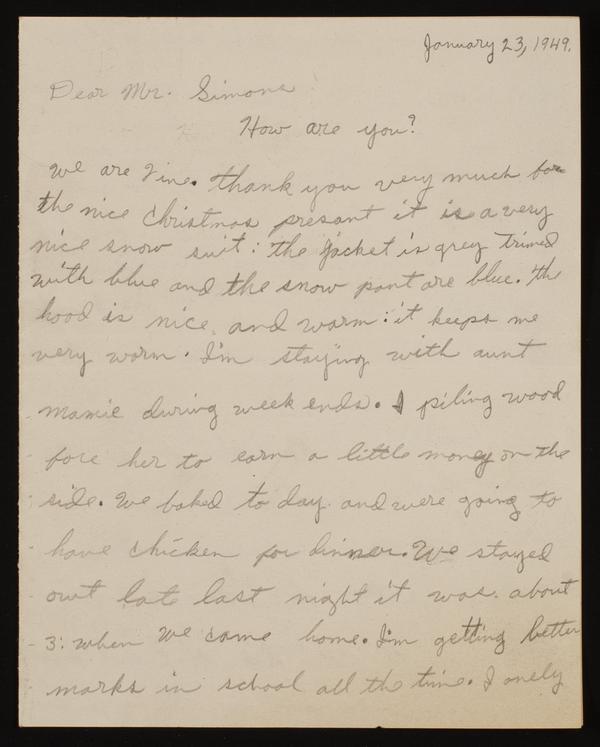 January 23, 1949.
Dear Mr. Simons
How are you?
We are Fine. thank you very much for
the nice Christmas presant it is a very
nice snow suit: the jacket is grey trimed
with blue and the snow pant are blue. the
hood is nice, and warm: it keeps me
very warm. I'm staying with aunt
mamie during week ends. I piling wood
fore her to earn a little money on the
side. We baked to day. and were going to
have chicken for dinner. We stayed
owt late last night it was. about
3: when we came home. I'm getting better
marks in school all the time. I onely